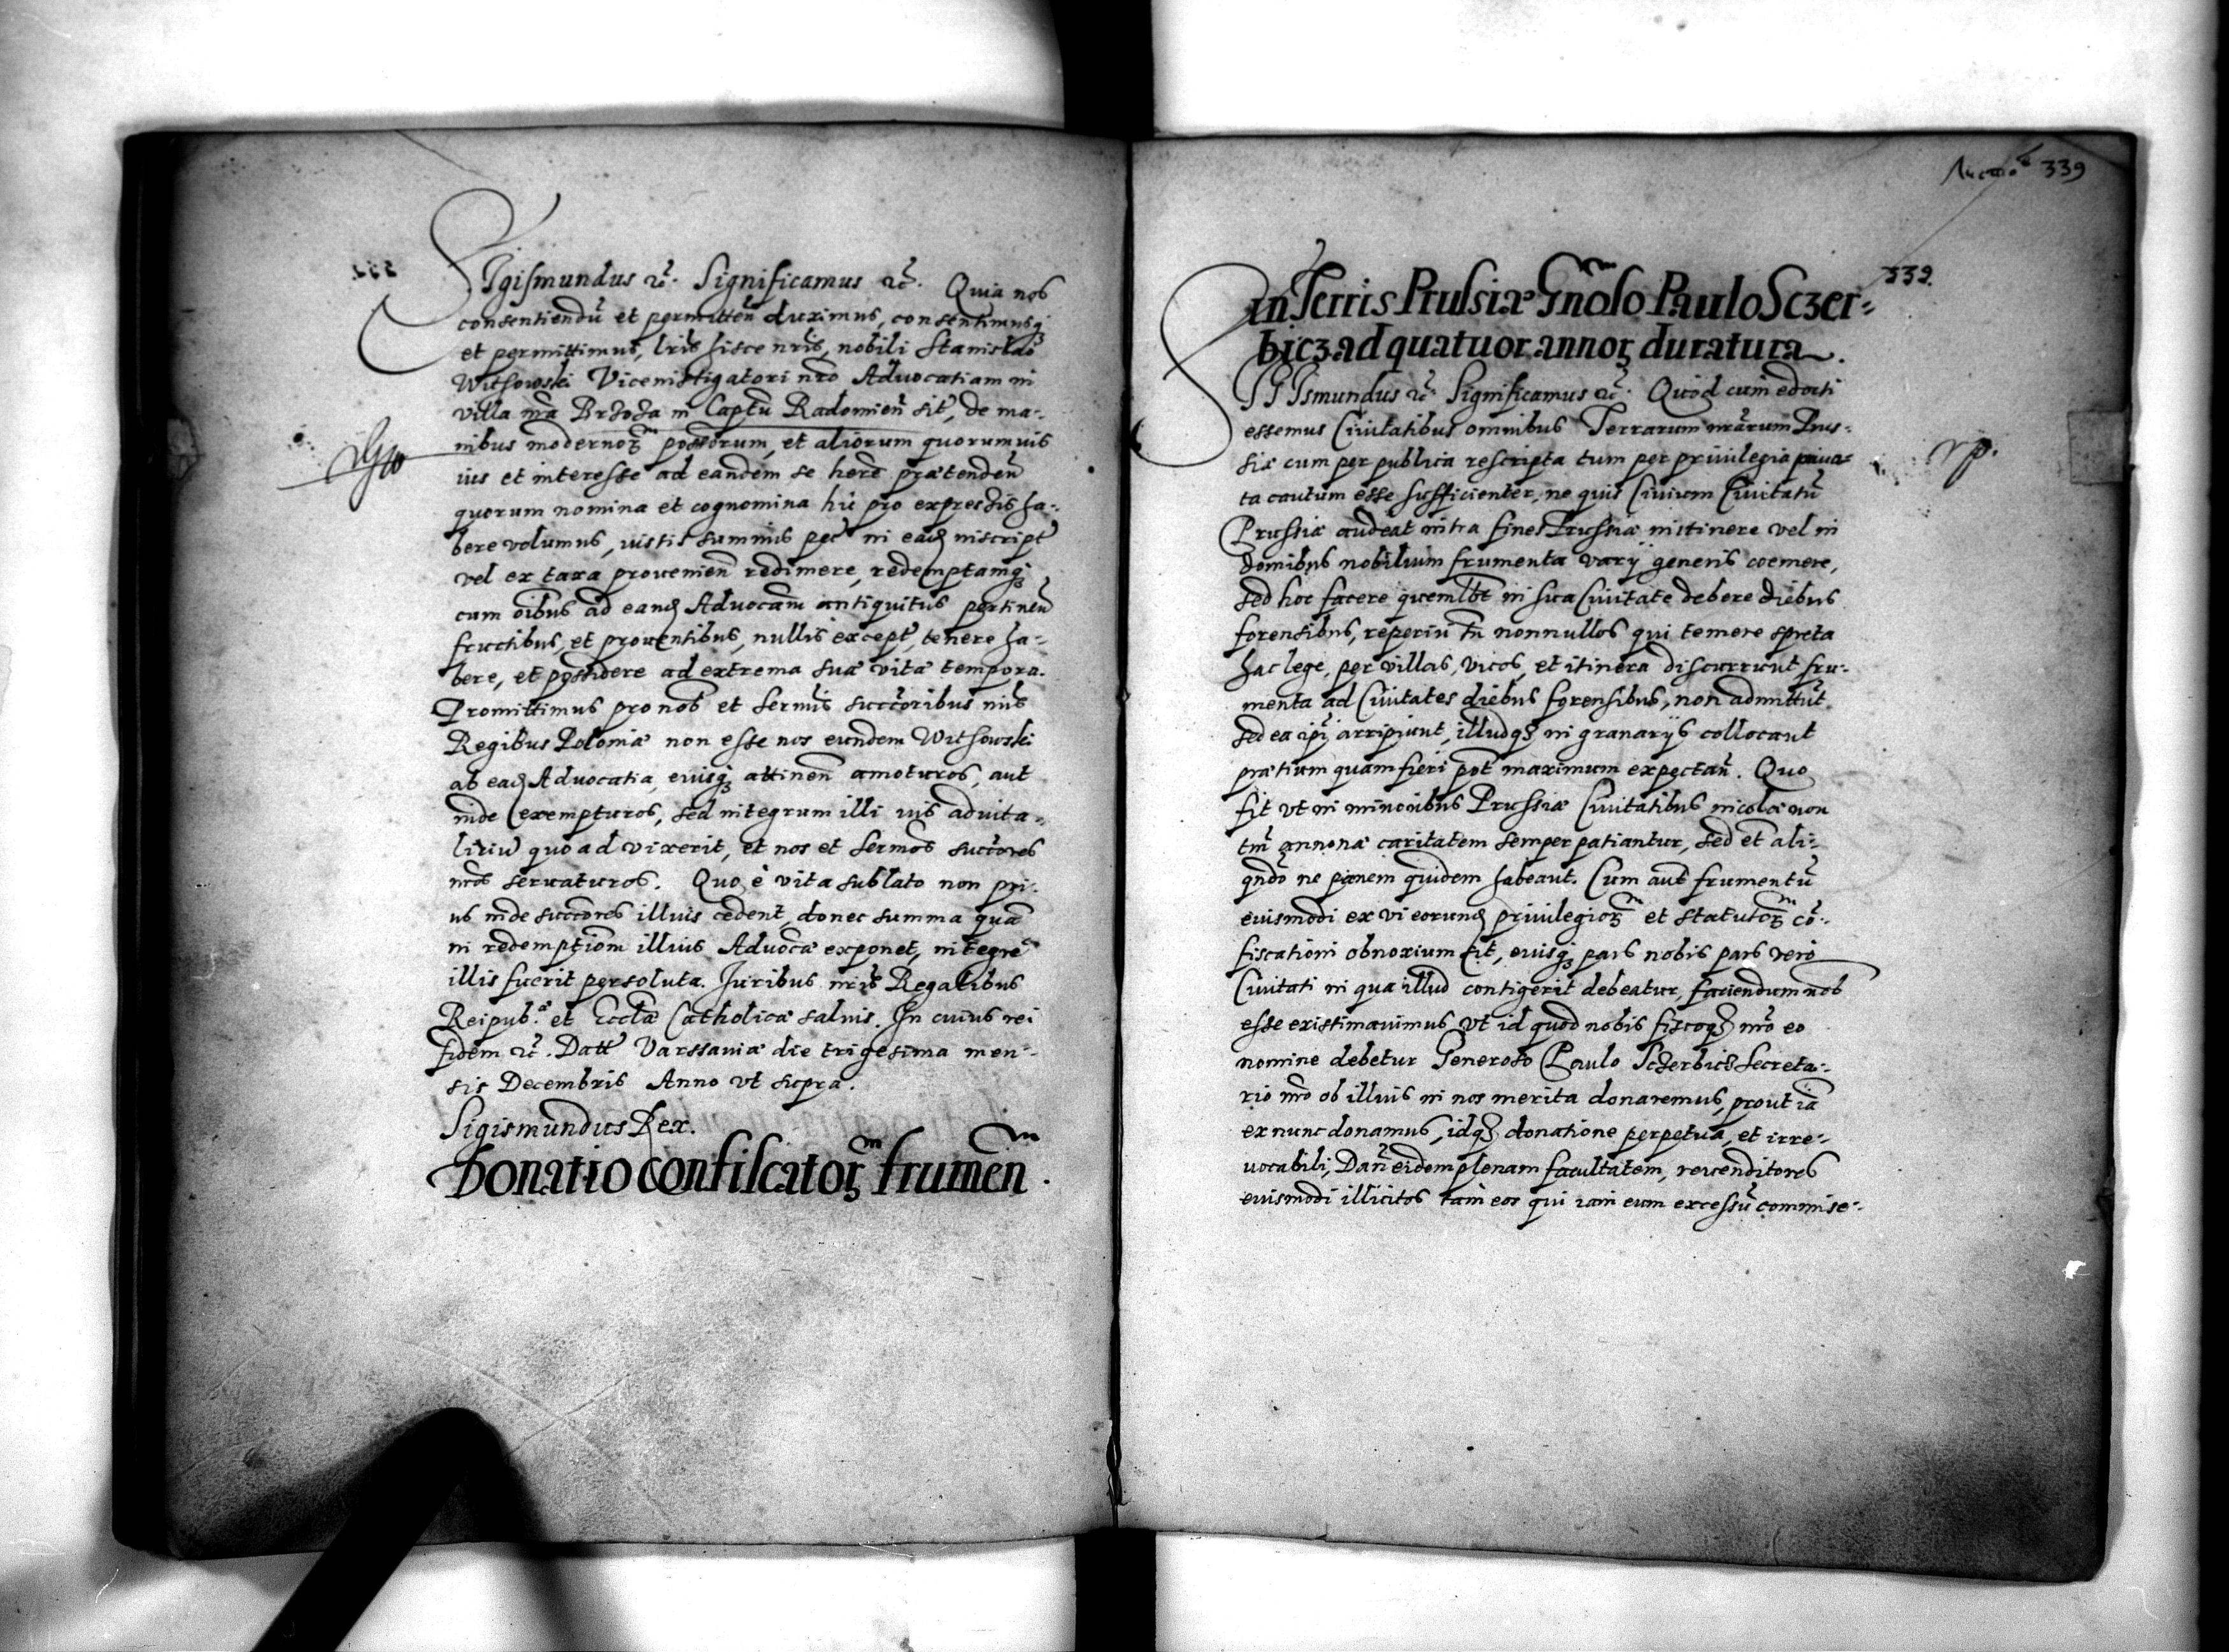 Sigismundus etc. Significamus etc. Quia nos
consentiendũ et permitten̄ duximus, consentimusq̃
et permittimus, lris̃ hisce nris̃, nobili Stanislao
Withowski Viceinstigatori nrõ Advocatiam in
villa nrã Brzoza in Captũ Radomien̄ sit̃, de ma-
nibus modernoꝝ possorum, et aliorum quorumvis
ius et interesse ad eandem se herẽ prætenden̄
quorum nomina et cognomina hic pro expressis ha-
bere volumus, iustis summis pec̃ in eaꝗ inscript̃
vel ex taxa provenien̄ redimere, redemptamq̃
cum oĩbus ad eanꝗ Advocam̃ antiquitus pertinen̄
fructibus, et proventibus, nullis except̃, tenere ha-
bere, et possidere ad extrema suæ vitæ tempora.
Promittimus pro nobis et Sermis̃ succoribus̃ nris̃
Regibus Poloniæ non esse nos eundem Withowski
ab eaꝗ Advocatia, eiusq̃ attinen̄ amoturos, aut
inde exempturos, sed integrum illi ius advita-
litiũ quoad vixerit, et nos et Sermos̃ succores̃
nros̃ servaturos. Quo è vita sublato non pri-
us inde succores̃ illius cedent, donec summa quã
in redemptiom̃ illius Advocæ̃ exponet, integrè
illis fuerit persoluta. Juribus nris̃ Regalibus
Reipub.æ et Ecclæ̃ Catholicæ salvis. In cuius rei
fidem etc. Datt̃ Varssaviæ die trigesima men-
sis Decembris Anno vt supra.
Sigismundus Rex.
Donatio confiscatoꝝ frumen̄
339
339.
in Terris Prussiæ Gnõso Paulo Sczer-
bicz ad quatuor annoꝝ duratura.
SIGIsmundus etc. Significamus etc. Quòd cum edocti
essemus Civitatibus omnibus Terrarum nrãrum Prus-
siæ cum per publica rescripta tum per privilegia pava-
ta cautum esse sufficienter, ne quis Civium Civitatũ
Prussiæ audeat intra fines Prussiæ instinere vel in
domibus nobilium frumenta varij generis coemere,
sed hoc facere quemlbt̃ in sua Civitate debere diebus
forensibus, reperiri tñ nonnullos qui temere spreta
hac lege, per villas, vicos, et itinera discurrunt fru-
menta ad Civitates diebus forensibus, non admittũt
sed ea ipi̇̃ arripiunt, illudqꝫ in granarijs collocant
prætium quam fieri pot̃ maximum expectañ. Quo
fit vt in minoribus Prussiæ Civitatibus incolæ non
tm̃ annonæ caritatem semper patiantur, sed et ali-
qndõ ne panem quidem habeant. Cum aut̃ frumentũ
eiusmodi ex vi eorunꝗ privilegioꝝ et statutoꝝ cõ-
fiscationi obnoxium sit, eiusq̃ pars nobis pars verò
Civitati in qua illud contigerit debeatur, faciendum nob̃
esse existimavimus vt id quod nobis fiscoqꝫ nrõ eo
nomine debetur Generoso Paulo Sczerbicz Secreta-
rio nrõ ob illius in nos merita donaremus, prout iã
ex nunc donamus, idqꝫ donatione perpetua, et irre-
vocabili, Dañ eidem plenam facultatem, revenditores
eiusmodi illicitos tam eos qui iam eum excessũ commise-